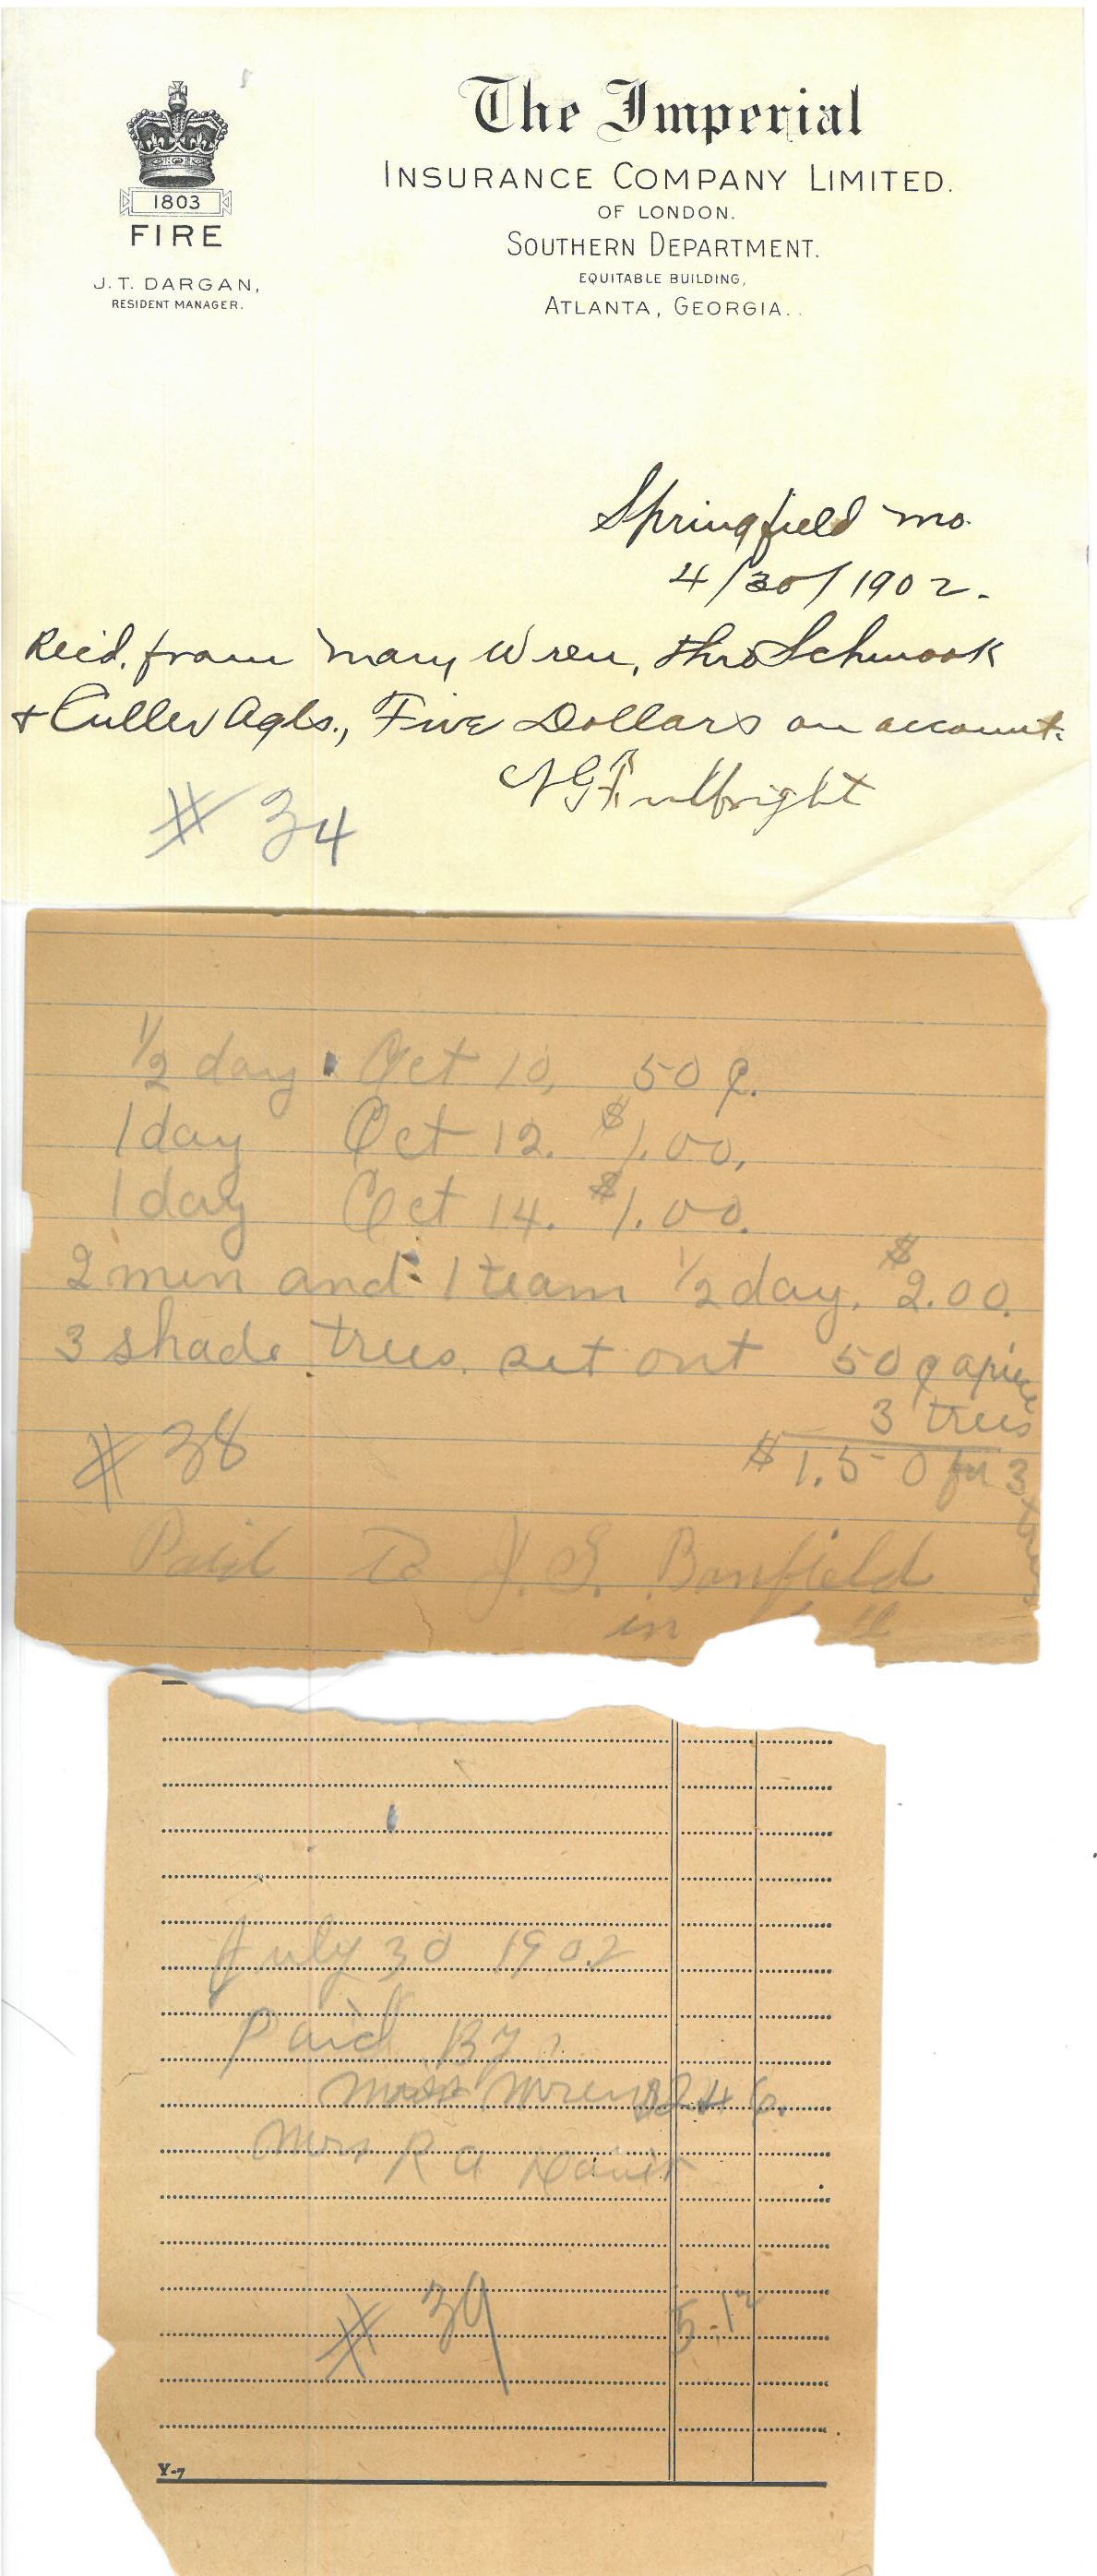 The Imperial
INSURANCE COMPANY LIMITED.
OF LONDON.
SOUTHERN DEPARTMENT.
EQUITABLE BUILDING,
ATLANTA, GEORGIA.
1803
FIRE
J. T. DARGAN,
RESIDENT MANAGER.
Springfield Mo.
4/30/1902.
Recd. from Mary Wren, thro Schmook
& Culler Agts., Five Dollars on account.
Fullbright
# 34
1/2 day Oct 10, 50¢.
1 day Oct 12. $1.00.
1 day Oct 14. $1.00.
2 men and 1 team 1/2 day. $2.00.
3 shade trees set out 50¢ apiece
3 trees
$1.50 for 3
trees
# 38
Paid to J. E. Banfield
in
July 30 1902
Paid By
Miss Wren
Mrs R A
# 39 5.12
Y-7